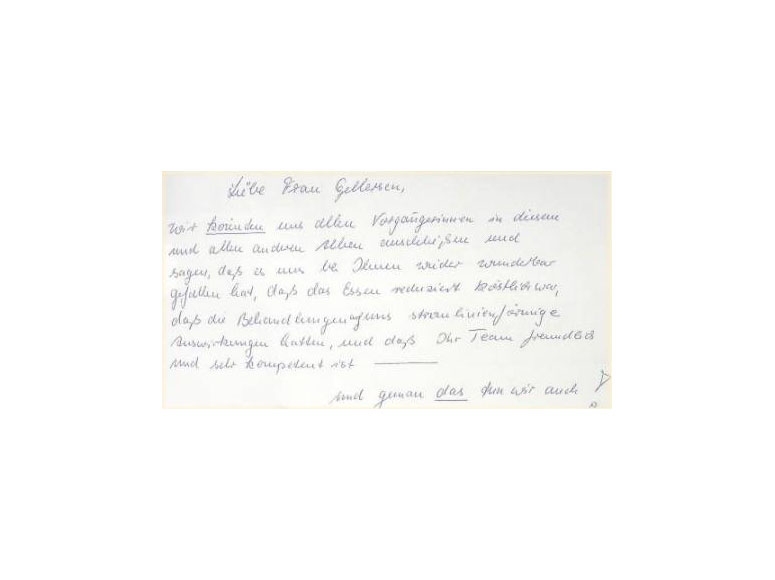 Liebe Frau Gellersen,
Wir könnten uns allen Vorgängerinnen in diesem
und allen anderen Alben anschließen und
sagen, daß es uns bei Ihnen wieder wunderbar
gefallen hat, daß das Essen reduziert köstlich war,
daß die Behandlungen stromlinienförmige
Auswirkungen hatten, und daß Ihr Team freundlich
und sehr kompetent ist
und genau das tun wir auch